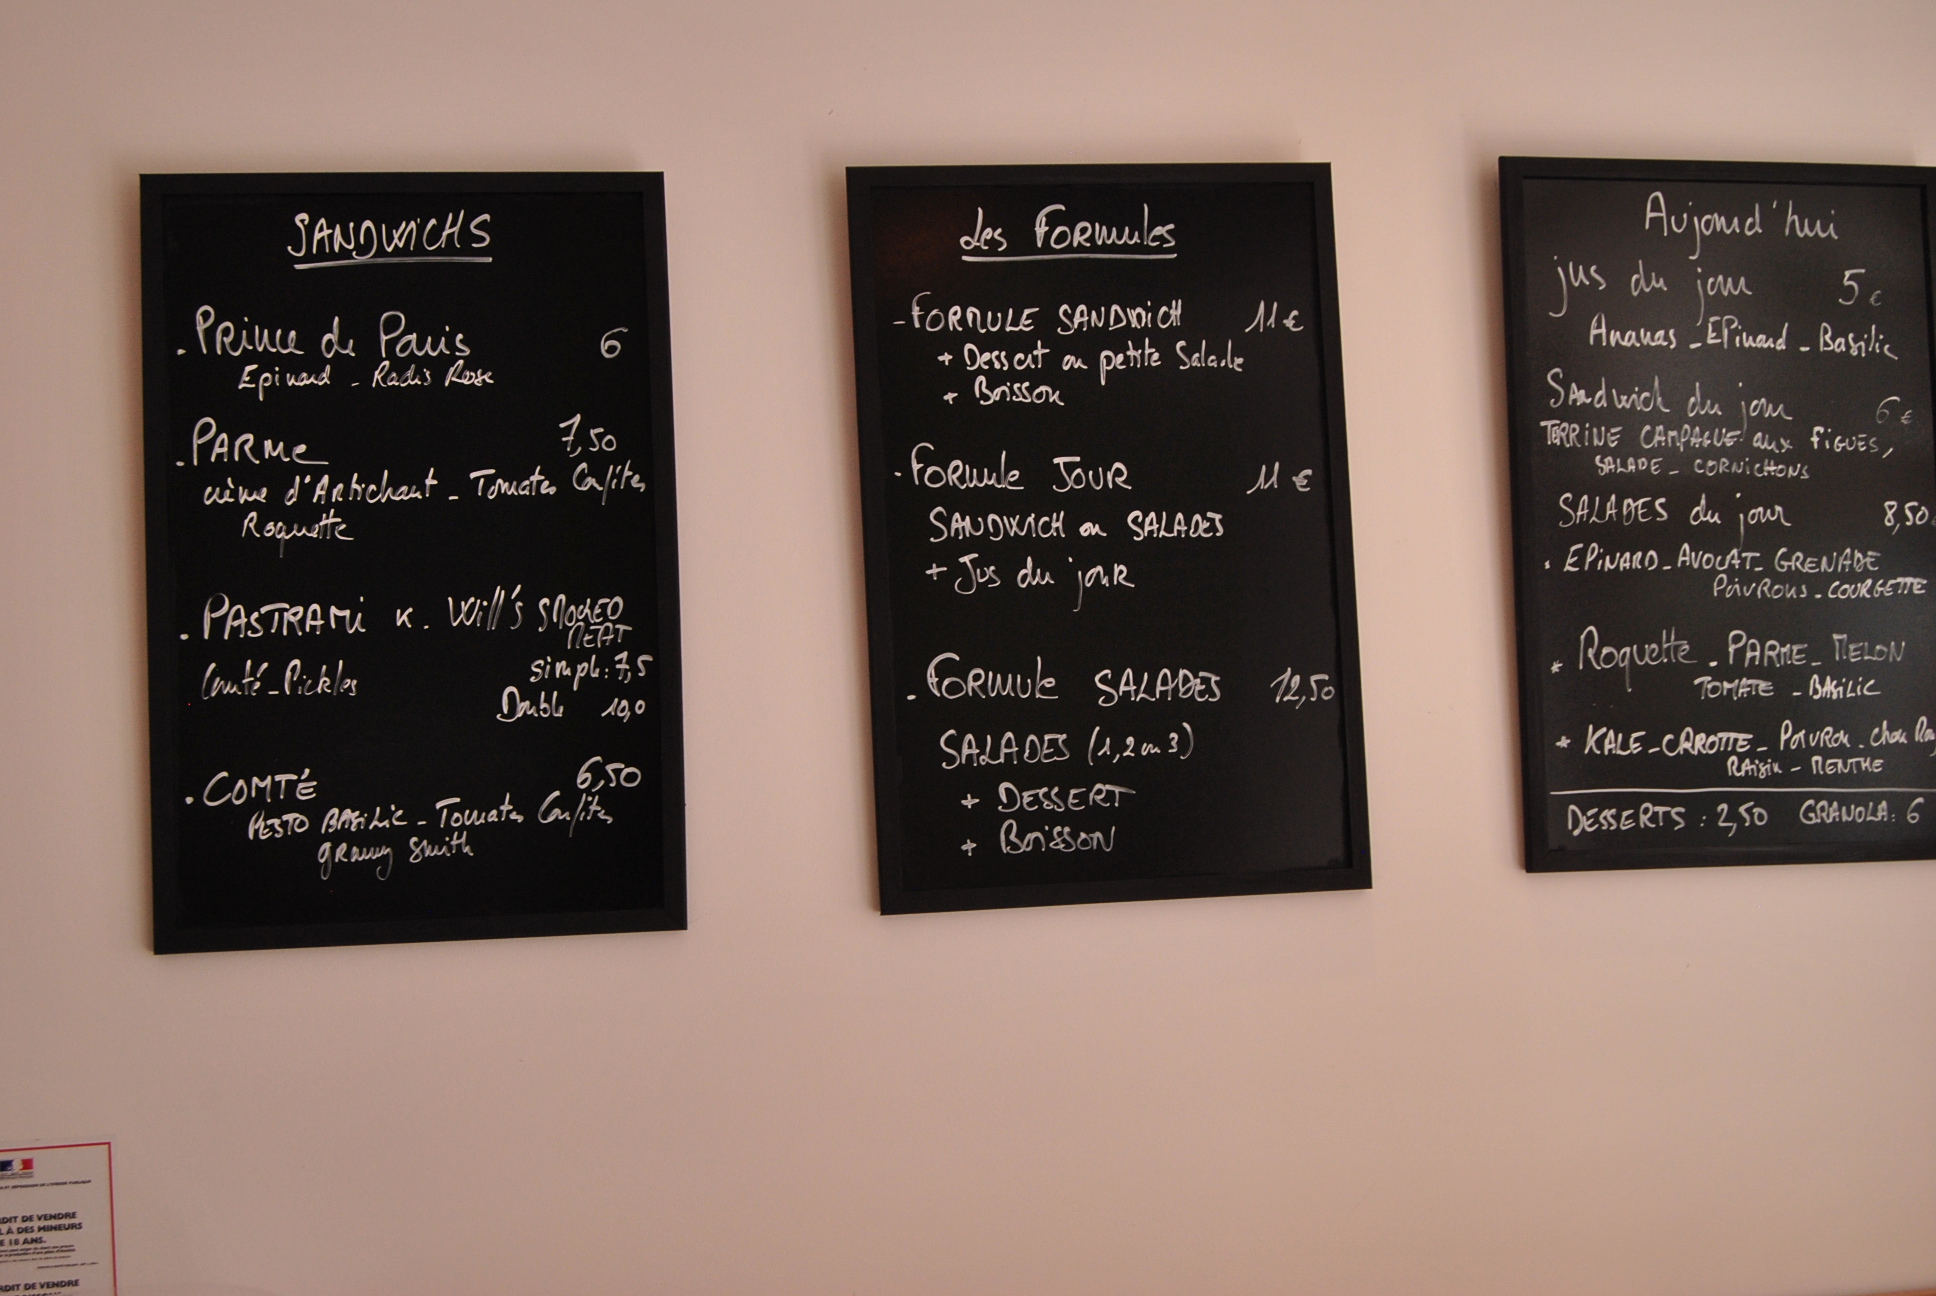 SANDWICHS
. Prince de Paris 6
Epinard - Radis Rose
. Parme 7,50
crème d'Artichaut - Tomates Confites
Roquette
. PASTRAMI K. Will's SMOKED
MEAT
Comté - Pickles simple: 7,5
Double 10,0
. COMTÉ 6,50
PESTO BASILIC - Tomates Confites
granny smith
Les Formules
- FORMULE SANDWICH 11 €
+ Dessert ou petite Salade
+ Boisson
. Formule JOUR 11 €
SANDWICH ou SALADES
+ Jus du jour
. Formule SALADES 12,50
SALADES (1, 2 ou 3)
+ DESSERT
+ BOISSON
Aujourd'hui
jus du jour 5 €
Ananas - Epinard - Basilic
Sandwich du jour 6 €
TERRINE CAMPAGNE aux FIGUES,
SALADE - CORNICHONS
SALADES du jour 8,50
. EPINARD - AVOCAT - GRENADE
Poivrons - COURGETTE
* Roquette - PARME - MELON
TOMATE - BASILIC
* KALE - CAROTTE - Poivron - Chou
RAISIN - MENTHE
DESSERTS : 2,50 GRANOLA : 6
DIT DE VENDRE
À DES MINEURS
18 ANS.
DIT DE VENDRE